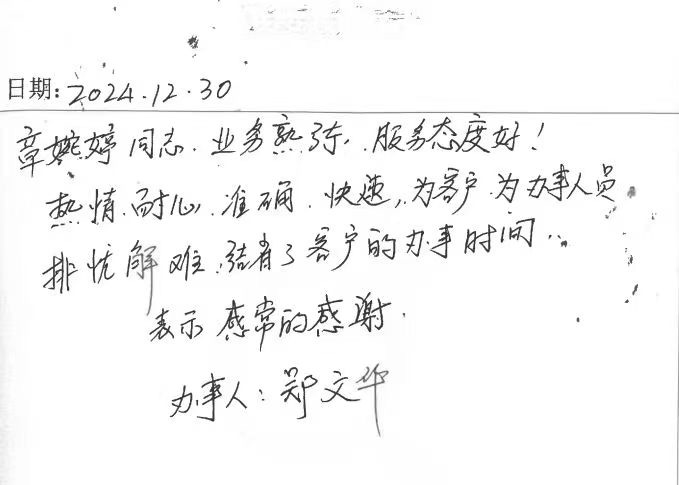 日期：2024.12.30
章婉婷同志.业务熟练.服务态度好！
热情.耐心.准确.快速,为客户为办事人员
排忧解难.结省了客户的办事时间..
表示感常的感谢.
办事人：郑文华